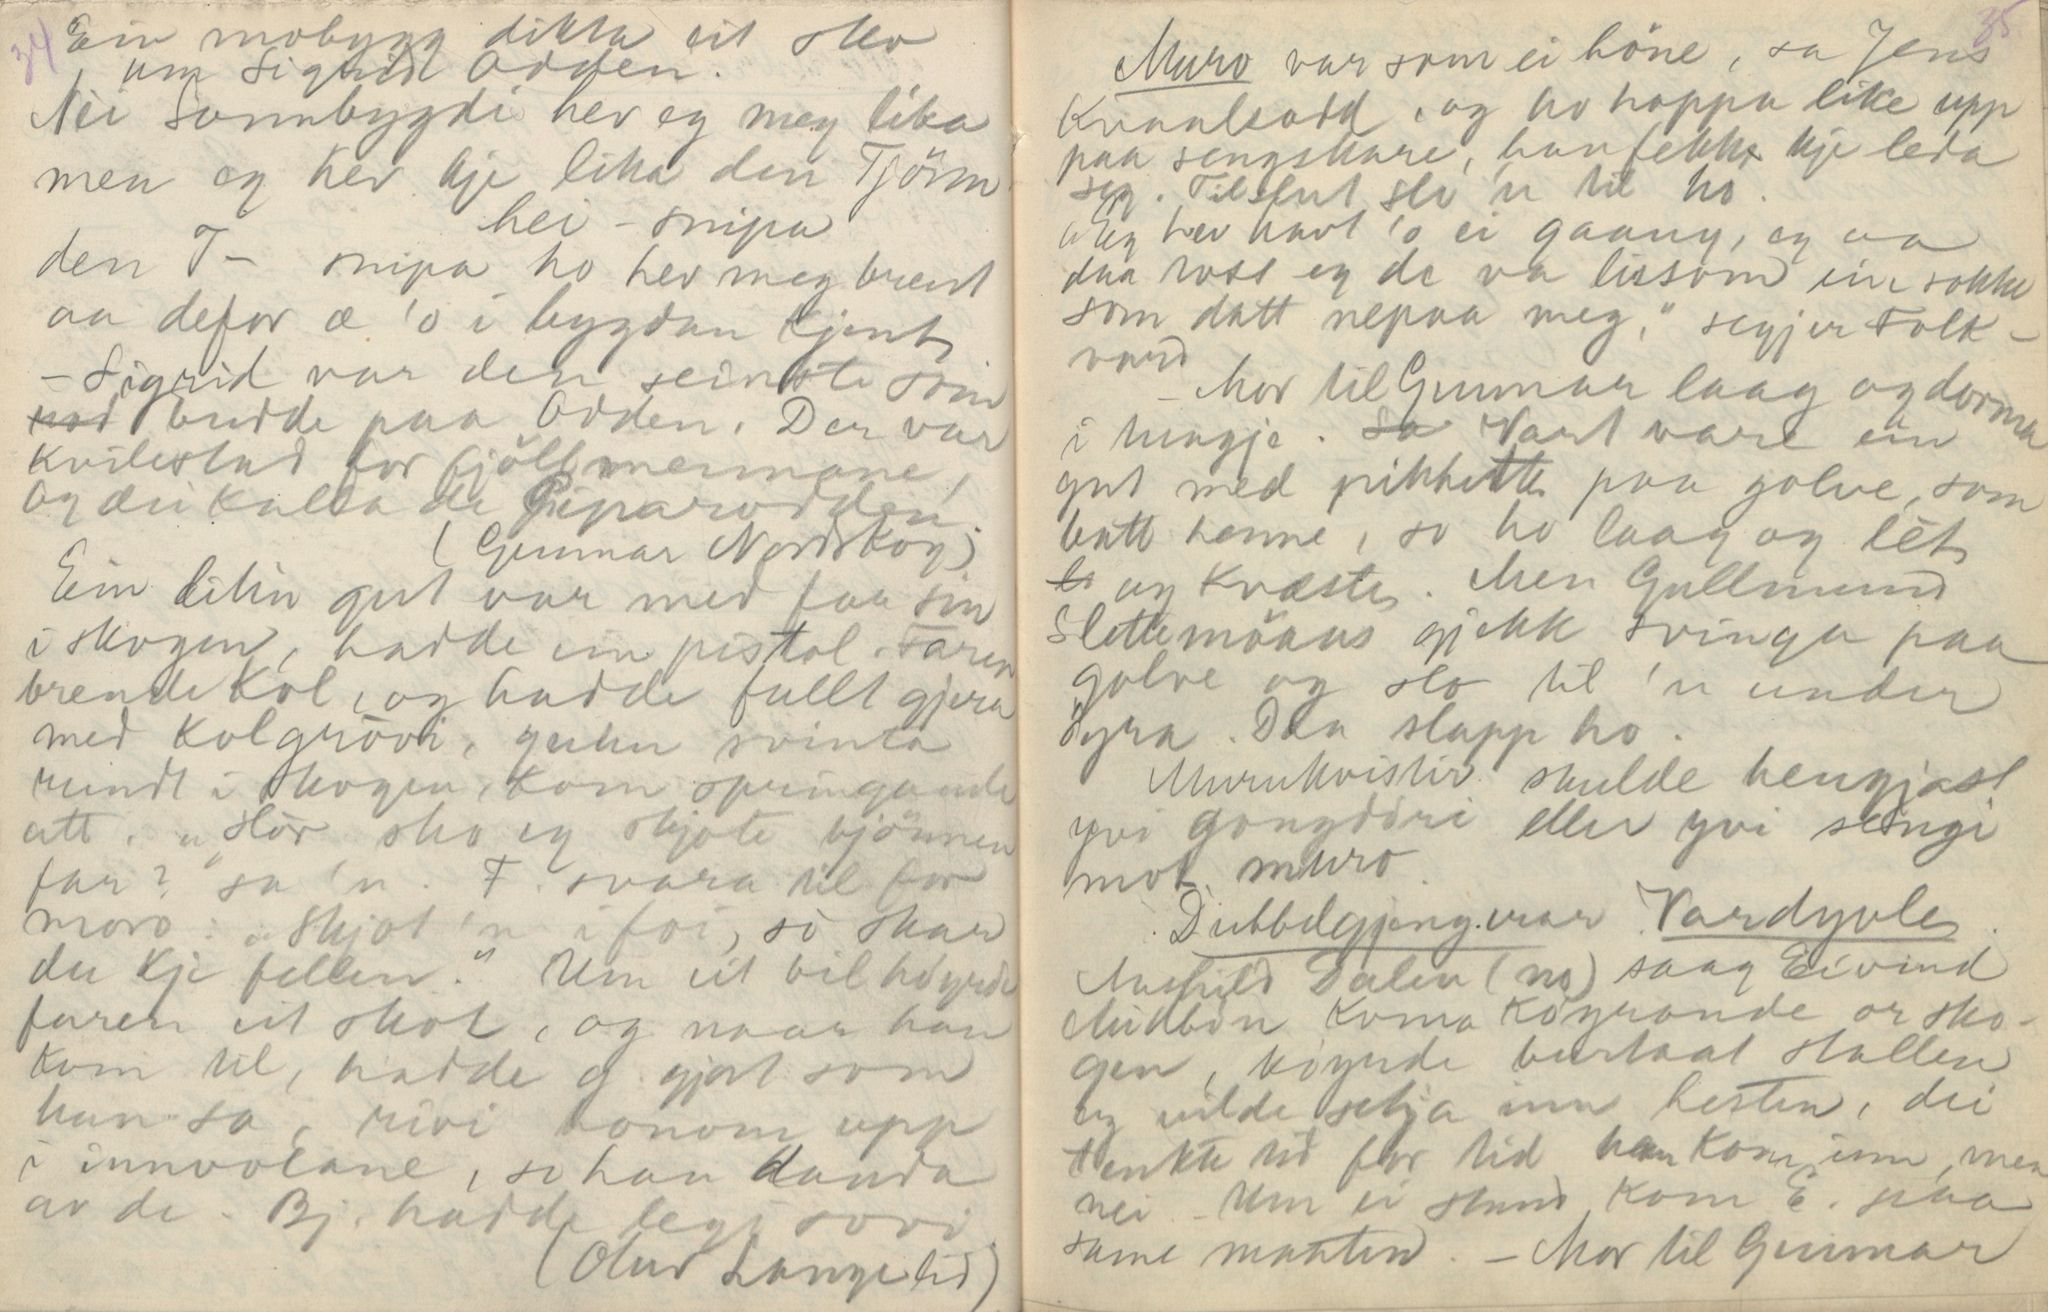 34
Ein mobygg dikta eit stev
um Sigrid Odden.
Nei Sonnbygdi hev eg meg lika
men eg hev kje lika den Tjörn
hei-snipa
den T- snipa ho hev meg brent
aa defor æ 'o i bygdan kjent,
- Sigrid var den seinste som
budde paa Odden. Der var
kvilestad for fjöllmennane,
og dei kalla de Piparodden.
(Gunnar Nordskog)
Ein liten gut var med far sin
i skogen, hadde ein pistol. Faren
brende kol, og hadde fullt gjera
med kolgrövi, guten svinta
rundt i skogen, kom springande
att. "Hör sko eg skjote bjönnen
far?" sa 'n. F. svara til for
moro: "Skjot 'n i foi, so skar
du kje fellen." Um eit bil höyrde
faren eit skot, og naar han
kom til, hadde g. gjort som
han sa, rivi honom upp
i innvolane, so han danda
av de. Bj. hadde legi sovi.
(Olav Langelid)
35
Muro var som ei höne, sa Jens
Kvaalsodd, og ho hoppa like upp
paa sengskare, han fekk kje leda
seg. Tilslut slo 'n til ho.
"Eg hev havt 'o ei gaang, eg aa
daa tost eg de va lissom ein sokke
som datt nepaa meg," segjer Folk-
vard
- Mor til Gunnar laag og dorma
i sengje. So Vart vare ein
gut med pikkhette paa golve, som
batt henne, so ho laag og let,
og kvæste. Men Gullmund
Slettemöaas gjekk svinga paa
golve og slo til 'n under
öyra. Daa slapp ho.
Murukvister skulde hengjast
yvi gongdöri eller yvi sengi
mot muro.
Dubbelgjengarar Vardyvle.
Maskild Dalen (no) saag Eivind
Midbön koma köyrande or sko-
gen, köyrde burtaat stallen
og vilde setja inn hesten, dei
tenkte tid for tid han kom inn, men
nei - Um ei stund kom E. paa
same maaten. - Mor til Gunnar